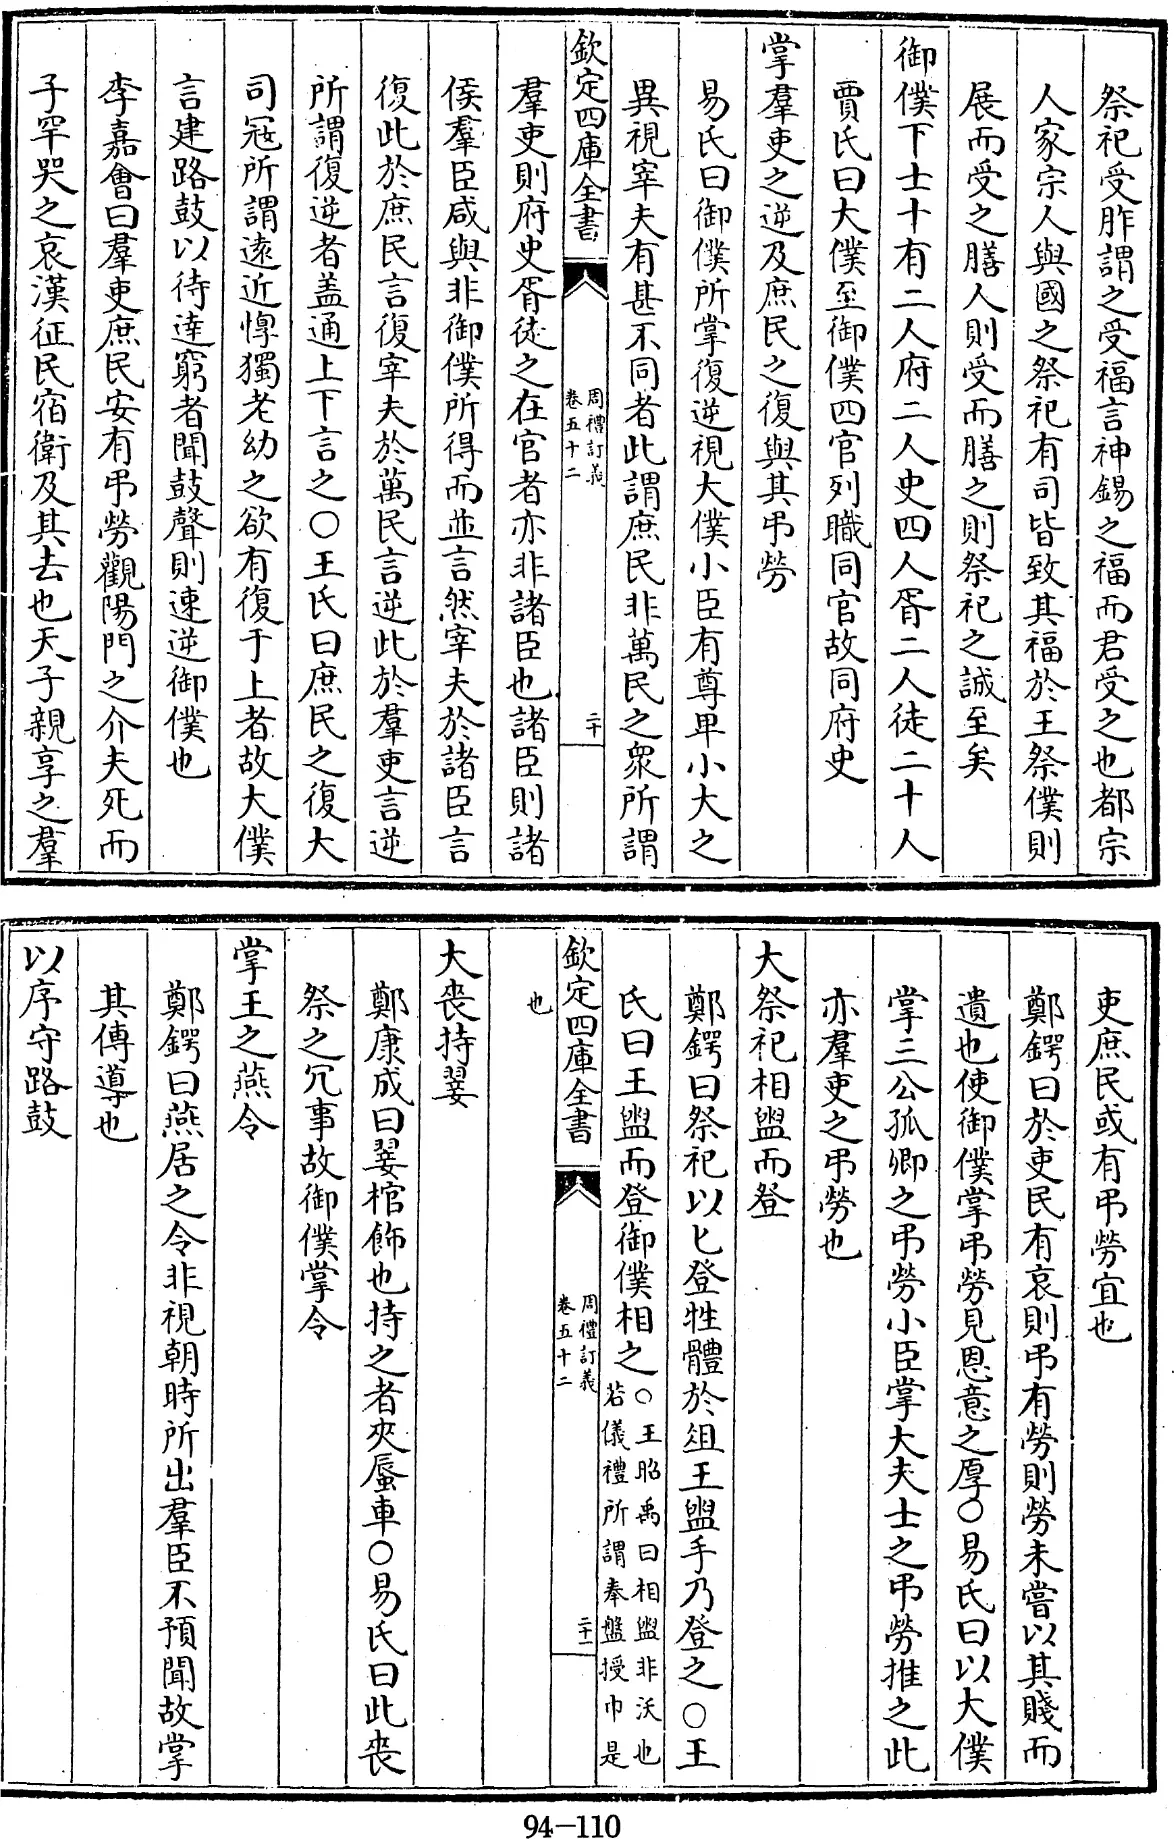 祭祀受胙謂之受福言神錫之福而君受之也都宗
人家宗人與國之祭祀有司皆致其福於王祭僕則
展而受之膳人則受而膳之則祭祀之誠至矣
御僕下士十有二人府二人史四人胥二人徒二十人
賈氏曰大僕至御僕四官列職同官故同府史
掌羣吏之逆及庶民之復與其弔勞
易氏曰御僕所掌復逆視大僕小臣有尊卑小大之
異視宰夫有甚不同者此謂庶民非萬民之衆所謂
欽定四庫全書
周禮訂義
卷五十二
二十
羣吏則府史胥徒之在官者亦非諸臣也諸臣則諸
侯羣臣咸與非御僕所得而並言然宰夫於諸臣言
復此於庶民言復宰夫於萬民言逆此於羣吏言逆
所謂復逆者盖通上下言之○王氏曰庶民之復大
司冦所謂遠近惸獨老幼之欲有復于上者故大僕
言建路鼓以待逹窮者聞鼓聲則速逆御僕也
李嘉㑹曰羣吏庶民安有弔勞觀陽門之介夫死而
子罕哭之哀漢征民宿衛及其去也天子親享之羣
吏庶民或有弔勞宜也
鄭鍔曰於吏民有哀則弔有勞則勞未嘗以其賤而
遺也使御僕掌弔勞見恩意之厚○易氏曰以大僕
掌三公孤卿之弔勞小臣掌大夫士之弔勞推之此
亦羣吏之弔勞也
大祭祀相盥而登
鄭鍔曰祭祀以匕登牲體於俎王盥手乃登之○王
氏曰王盥而登御僕相之○王昭禹曰相盥非沃也
若儀禮所謂奉盤授巾是
欽定四庫全書
周禮訂義
卷五十二
二十一
也
大喪持翣
鄭康成曰翣棺飾也持之者夾蜃車○易氏曰此喪
祭之冗事故御僕掌令
掌王之燕令
鄭鍔曰燕居之令非視朝時所出羣臣不預聞故掌
其傳導也
以序守路鼓
94-110